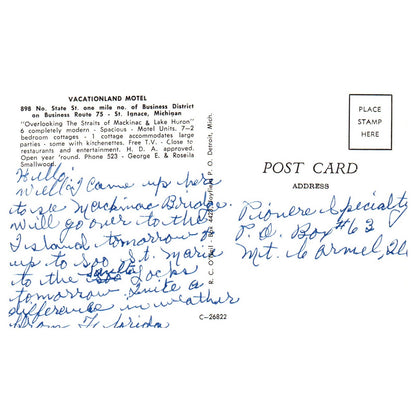 VACATIONLAND MOTEL
898 No. State St. one mile no. of Business District
on Business Route 75 - St. Ignace, Michigan
"Overlooking The Straits of Mackinac & Lake Huron"
6 completely modern - Spacious - Motel Units. 7-2
bedroom cottages - 1 cottage accommodates large
parties - some with kitchenettes. Free T.V. - Close to
restaurants and entertainment. H. D. A. approved.
Open year 'round. Phone 523 - George E. & Roseila
Smallwood.
Hello,
Well I came up here
to see Mackinac Bridge
will go over to the
Island tomorrow &
up to Soo St. Marie
to the Locks
tomorrow. Quite a
difference in weather
from Florida
R. C. Box 442 Mayfield P. O. Detroit, Mich.
C-26822
PLACE
STAMP
HERE
POST CARD
ADDRESS
Pioneer Specialty
P.O. Box #63
Mt. Carmel, Ill